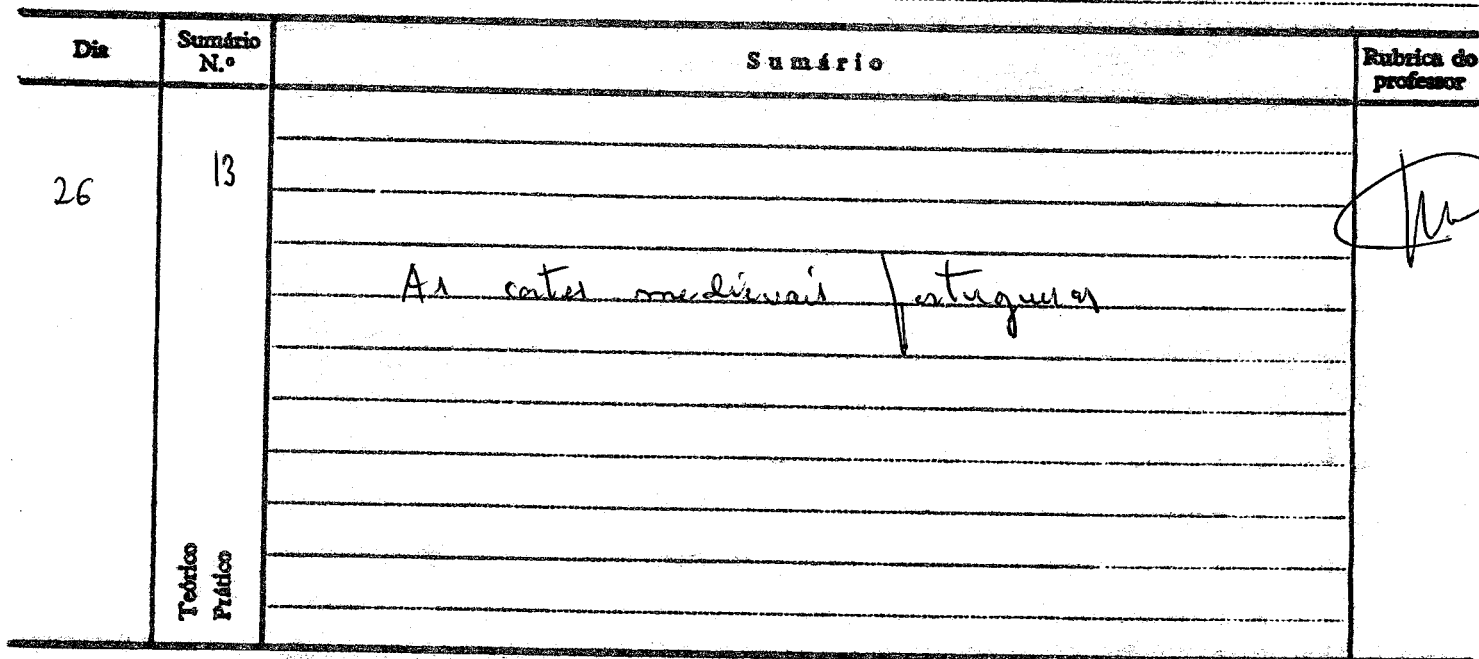 Dia
Sumário N.º
Sumário
Rubrica do professor
26
13
As cortes medievais portuguesas
Teórico
Prático